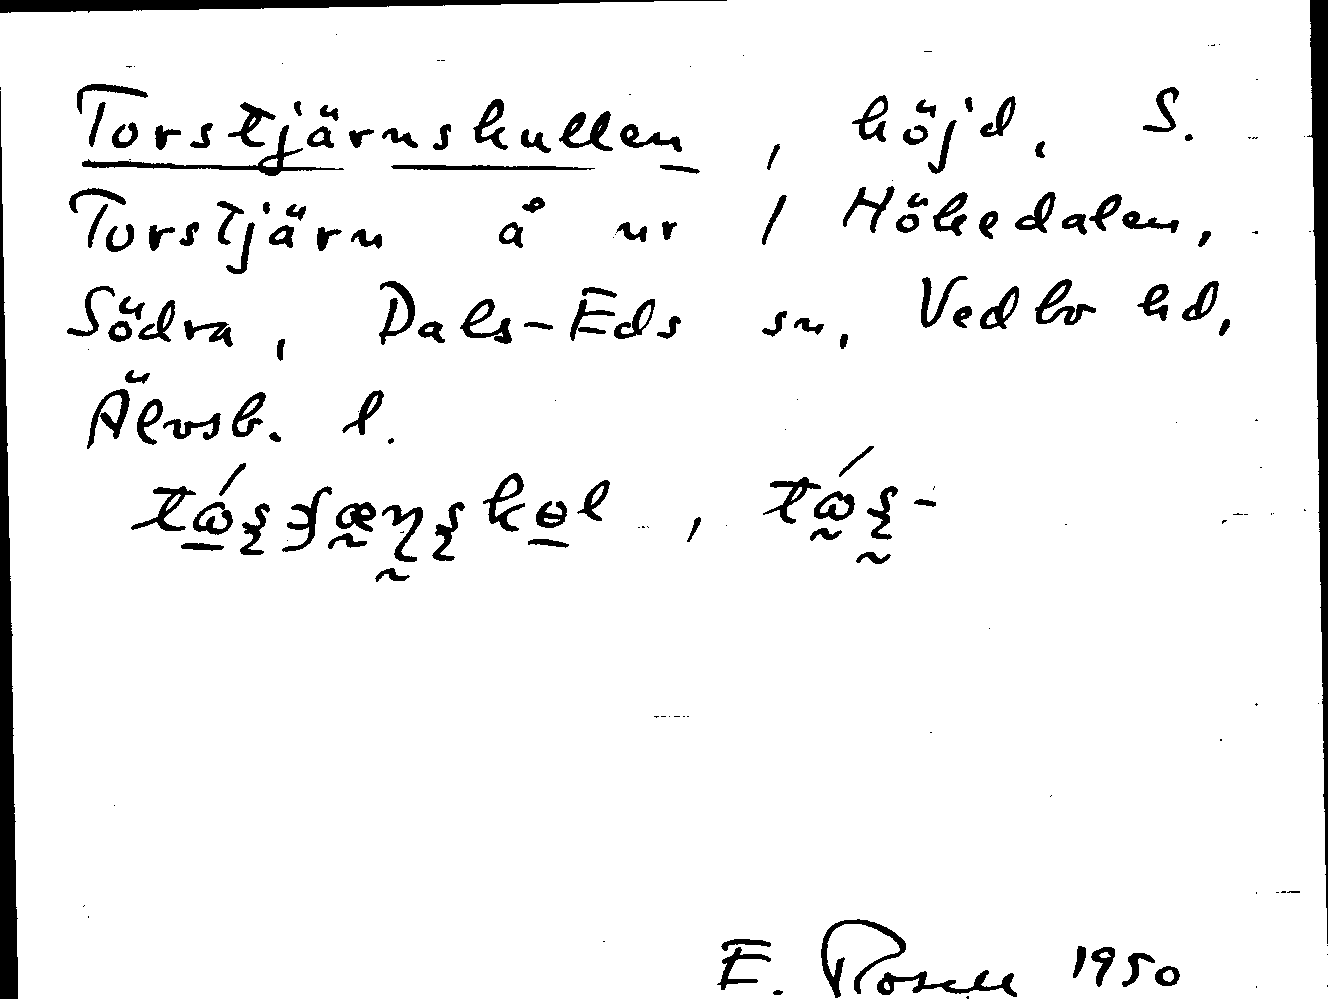 Torstjärnskullen, höjd, S.
Torstjärn å nr 1 Hökedalen,
Södra, Dals-Eds sn, Vedbo hd,
Älvsb. l.
E. Rosell 1950